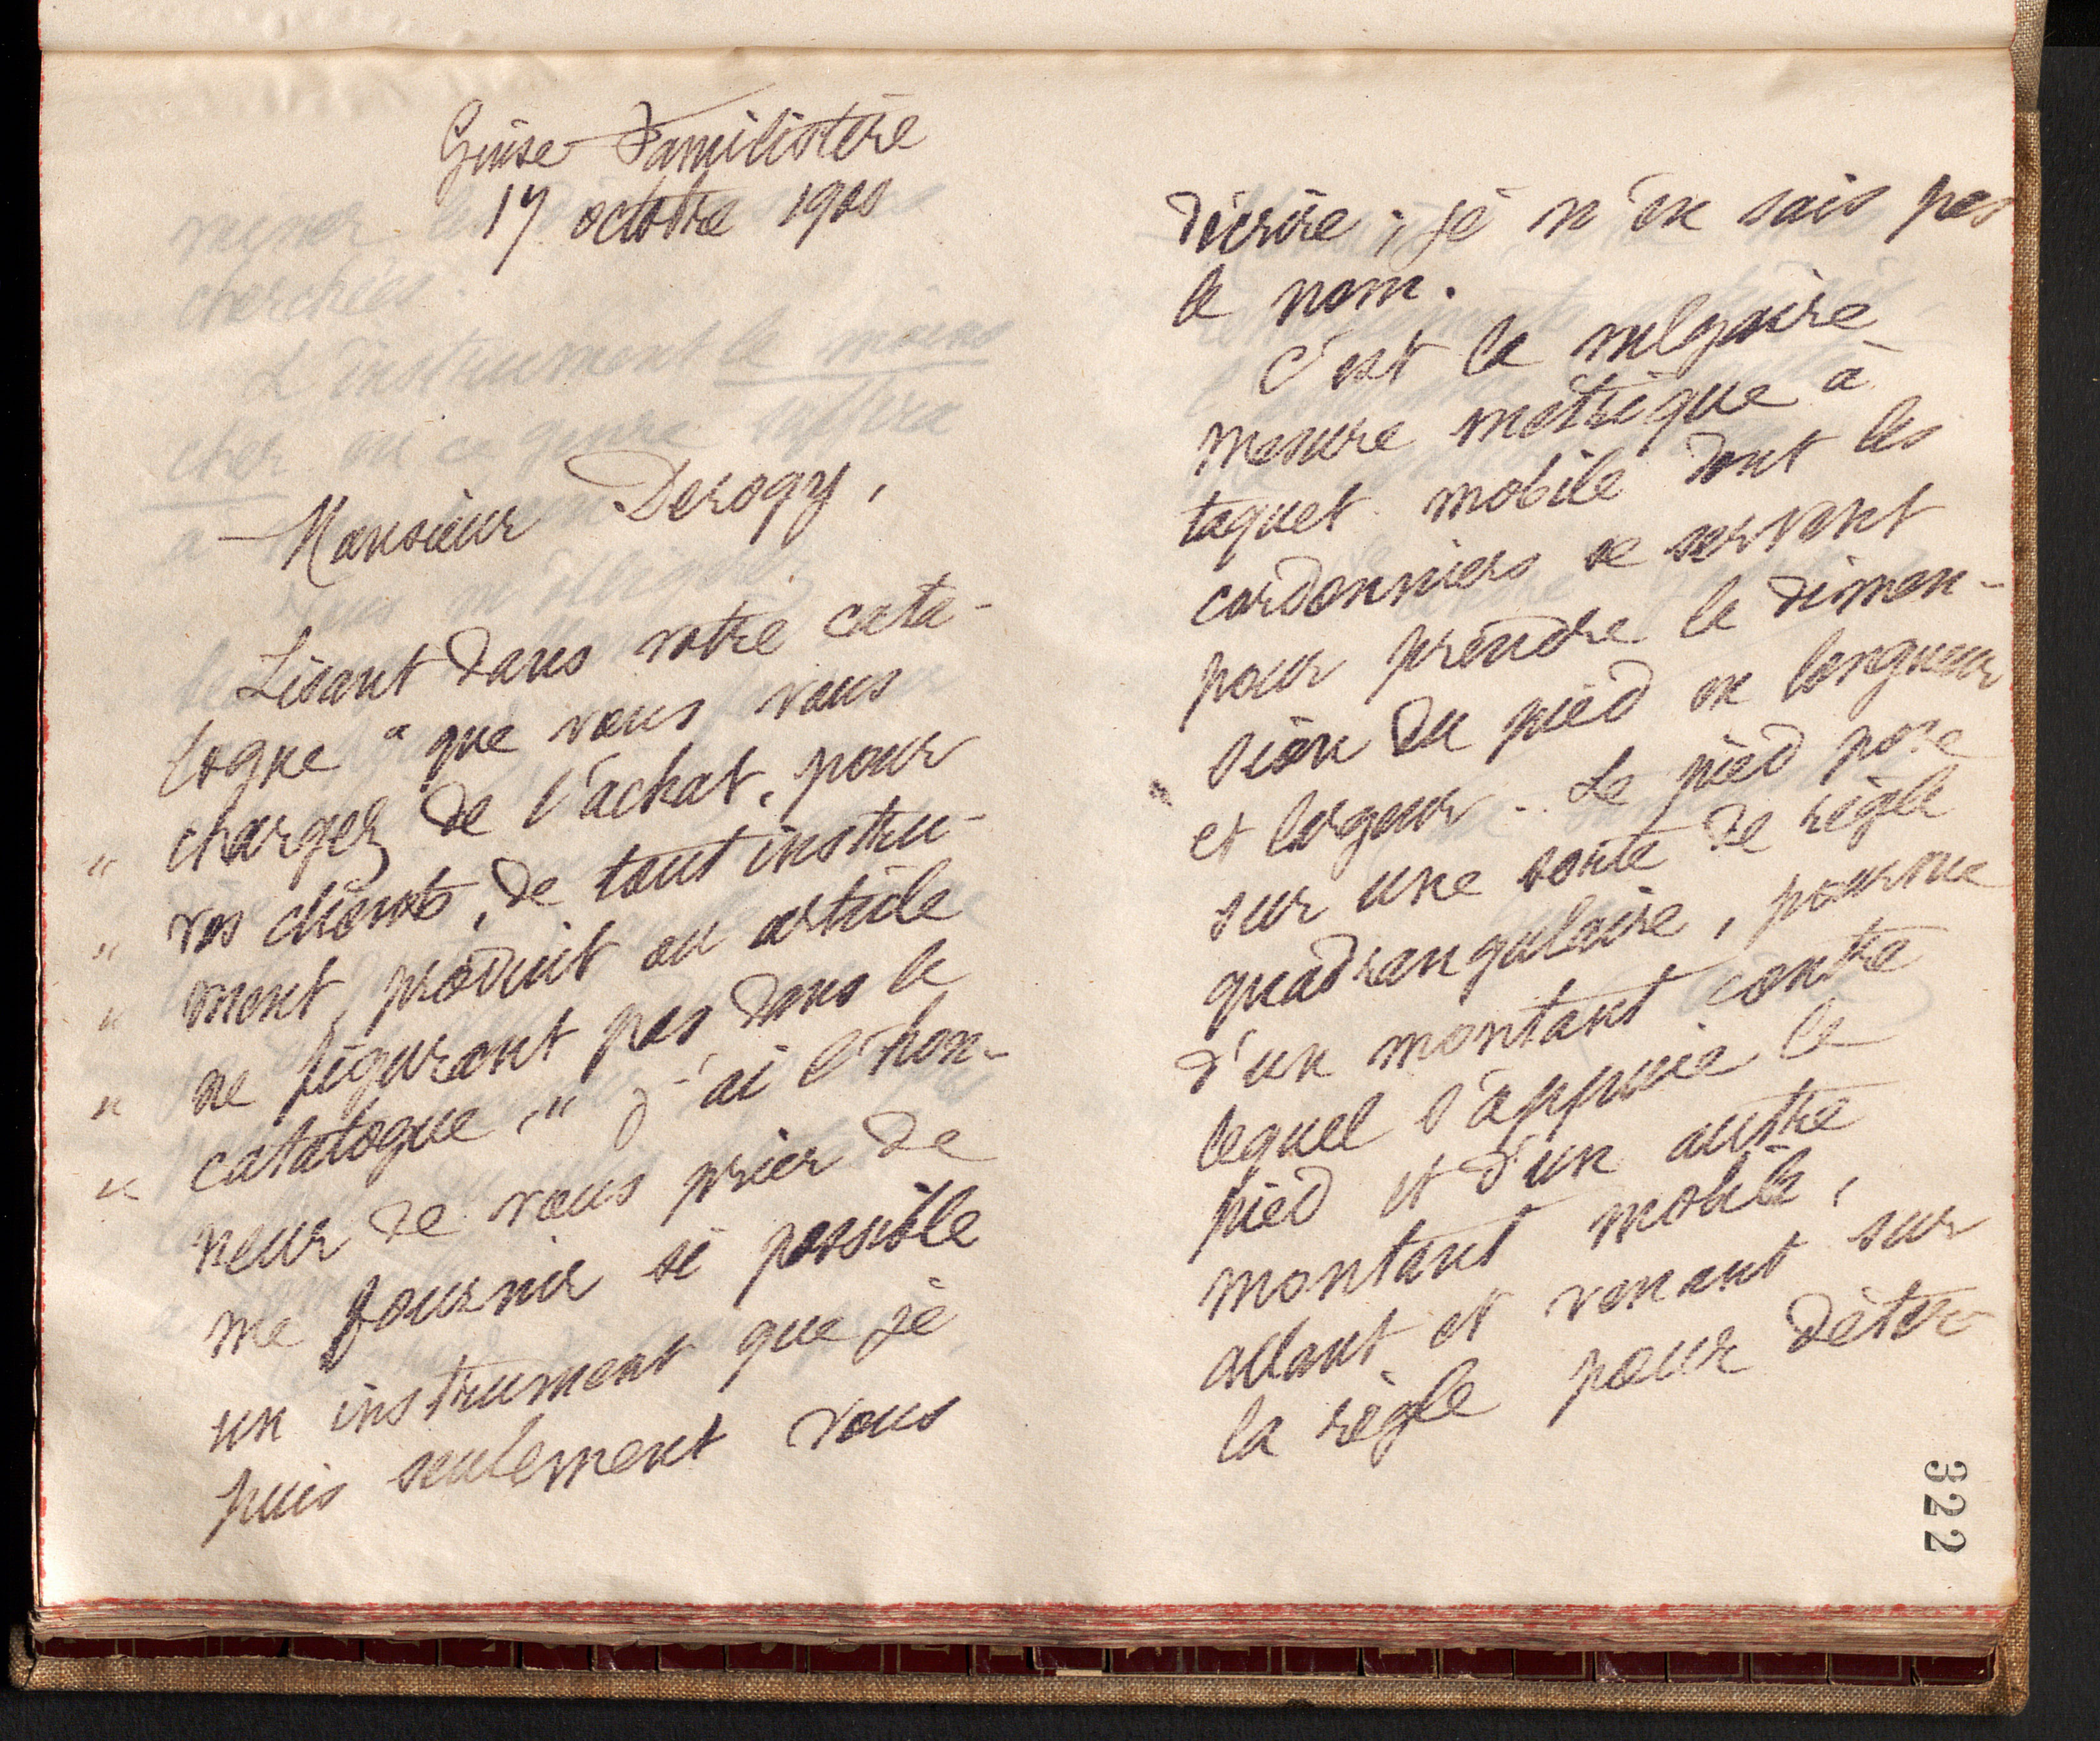 Guise Familistère
17 octobre 1900
Monsieur Derogy,
Lisant dans votre cata-
logue "que vous vous
" chargez de l'achat, pour
" vos clients, de tout instru-
" ment, produit ou article
" ne figurant pas dans le
" catalogue," j'ai l'hon-
neur de vous prier de
me fournir si possible
un instrument que je
puis seulement vous
décrire ; je n'en sais pas
le nom.
C'est la vulgaire
mesure métrique à
taquet mobile dont les
cordonniers se servent
pour prendre la dimen-
sion du pied en longueur
et largeur. Le pied pose
sur une sorte de règle
quadrangulaire, pourvue
d'un montant contre
lequel s'appuie le
pied et d'un autre
montant mobile,
allant et venant sur
la règle pour déter-
322